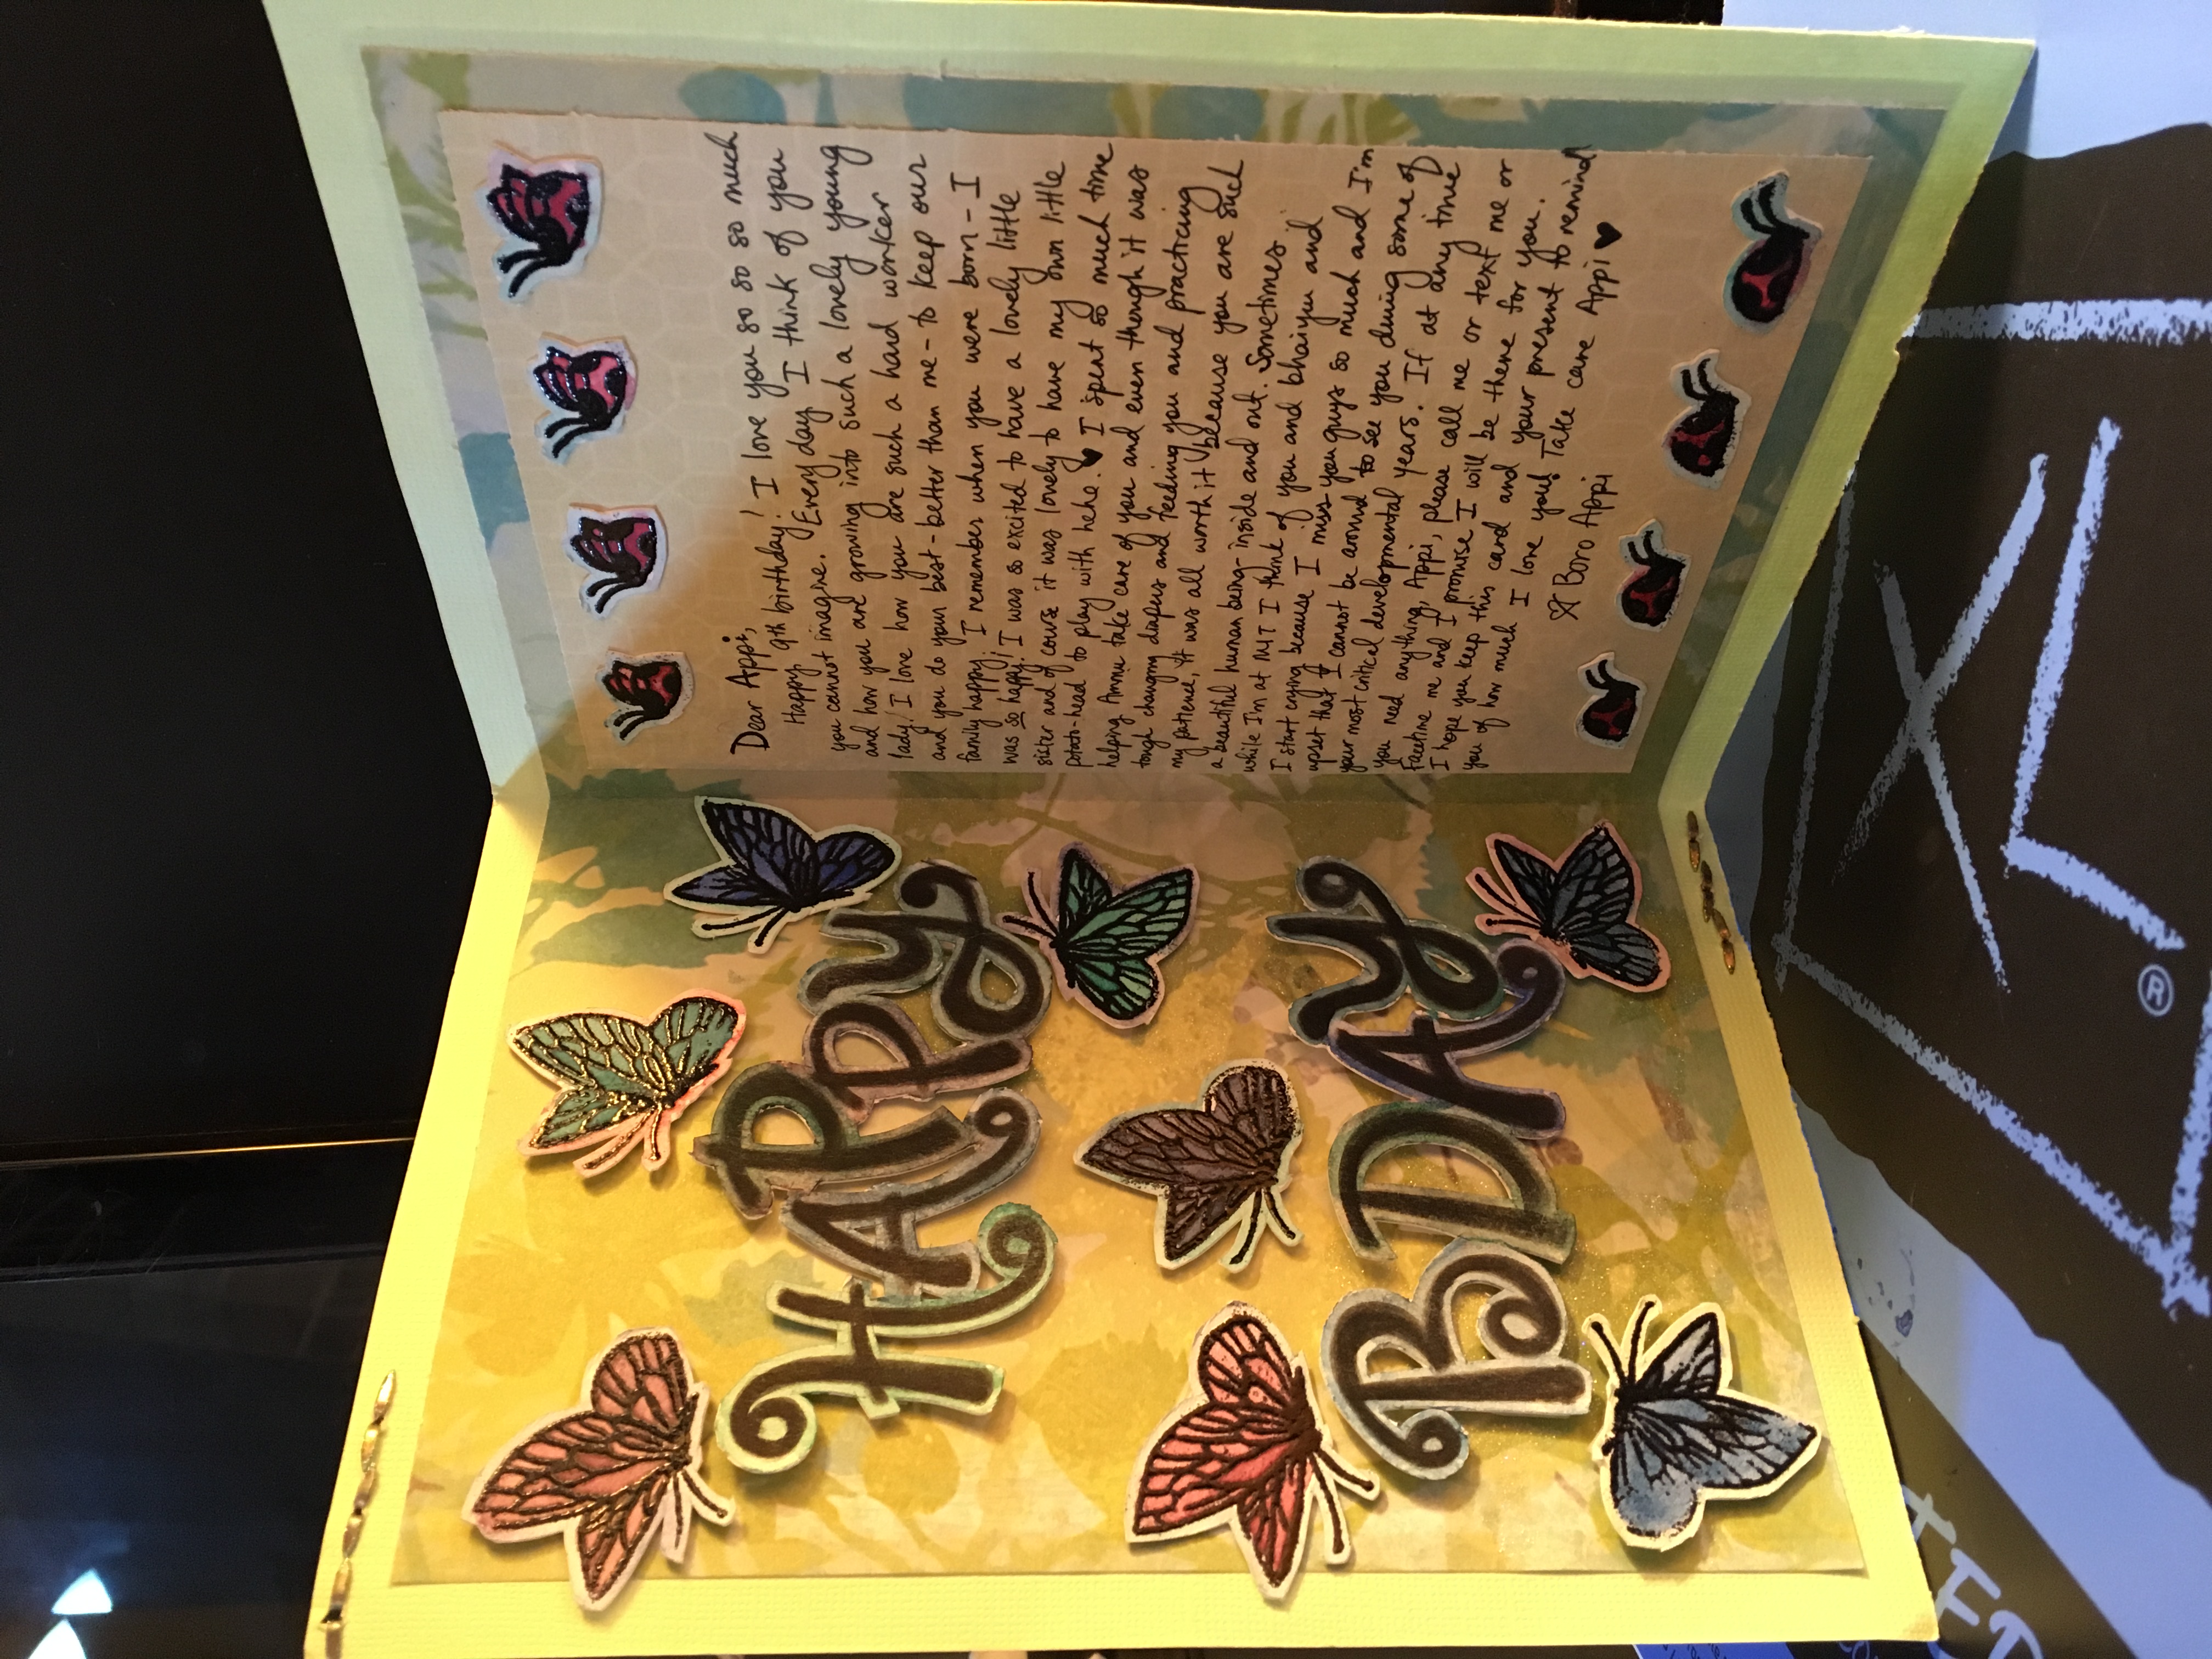 HAPPY
BDAY
Dear Appi,
Happy 9th birthday! I love you so so so much
you cannot imagine. Everyday I think of you
and how you are growing into such a lovely young
lady! I love how you are such a hard worker
and you do your best - better than me - to keep our
family happy. I remember when you were born - I
was so happy! I was so excited to have a lovely little
sister and of course it was lovely to have my own little
potato-head to play with hehe. ♥ I spent so much time
helping Ammu take care of you and even though it was
tough changing diapers and feeding you and practicing
my patience, it was all worth it because you are such
a beautiful human being - inside and out. Sometimes...
while I'm at MIT I think of you and bhaiyu and
I start crying because I miss you guys so much and I'm
upset that I cannot be around to see you during some of
your most critical developmental years. If at any time
you need anything, Appi, please call me or text me or
Facetime me and I promise I will be there for you.
I hope you keep this card and your present to remind
you of how much I love you! Take care Appi ♥
Boro Appi
®